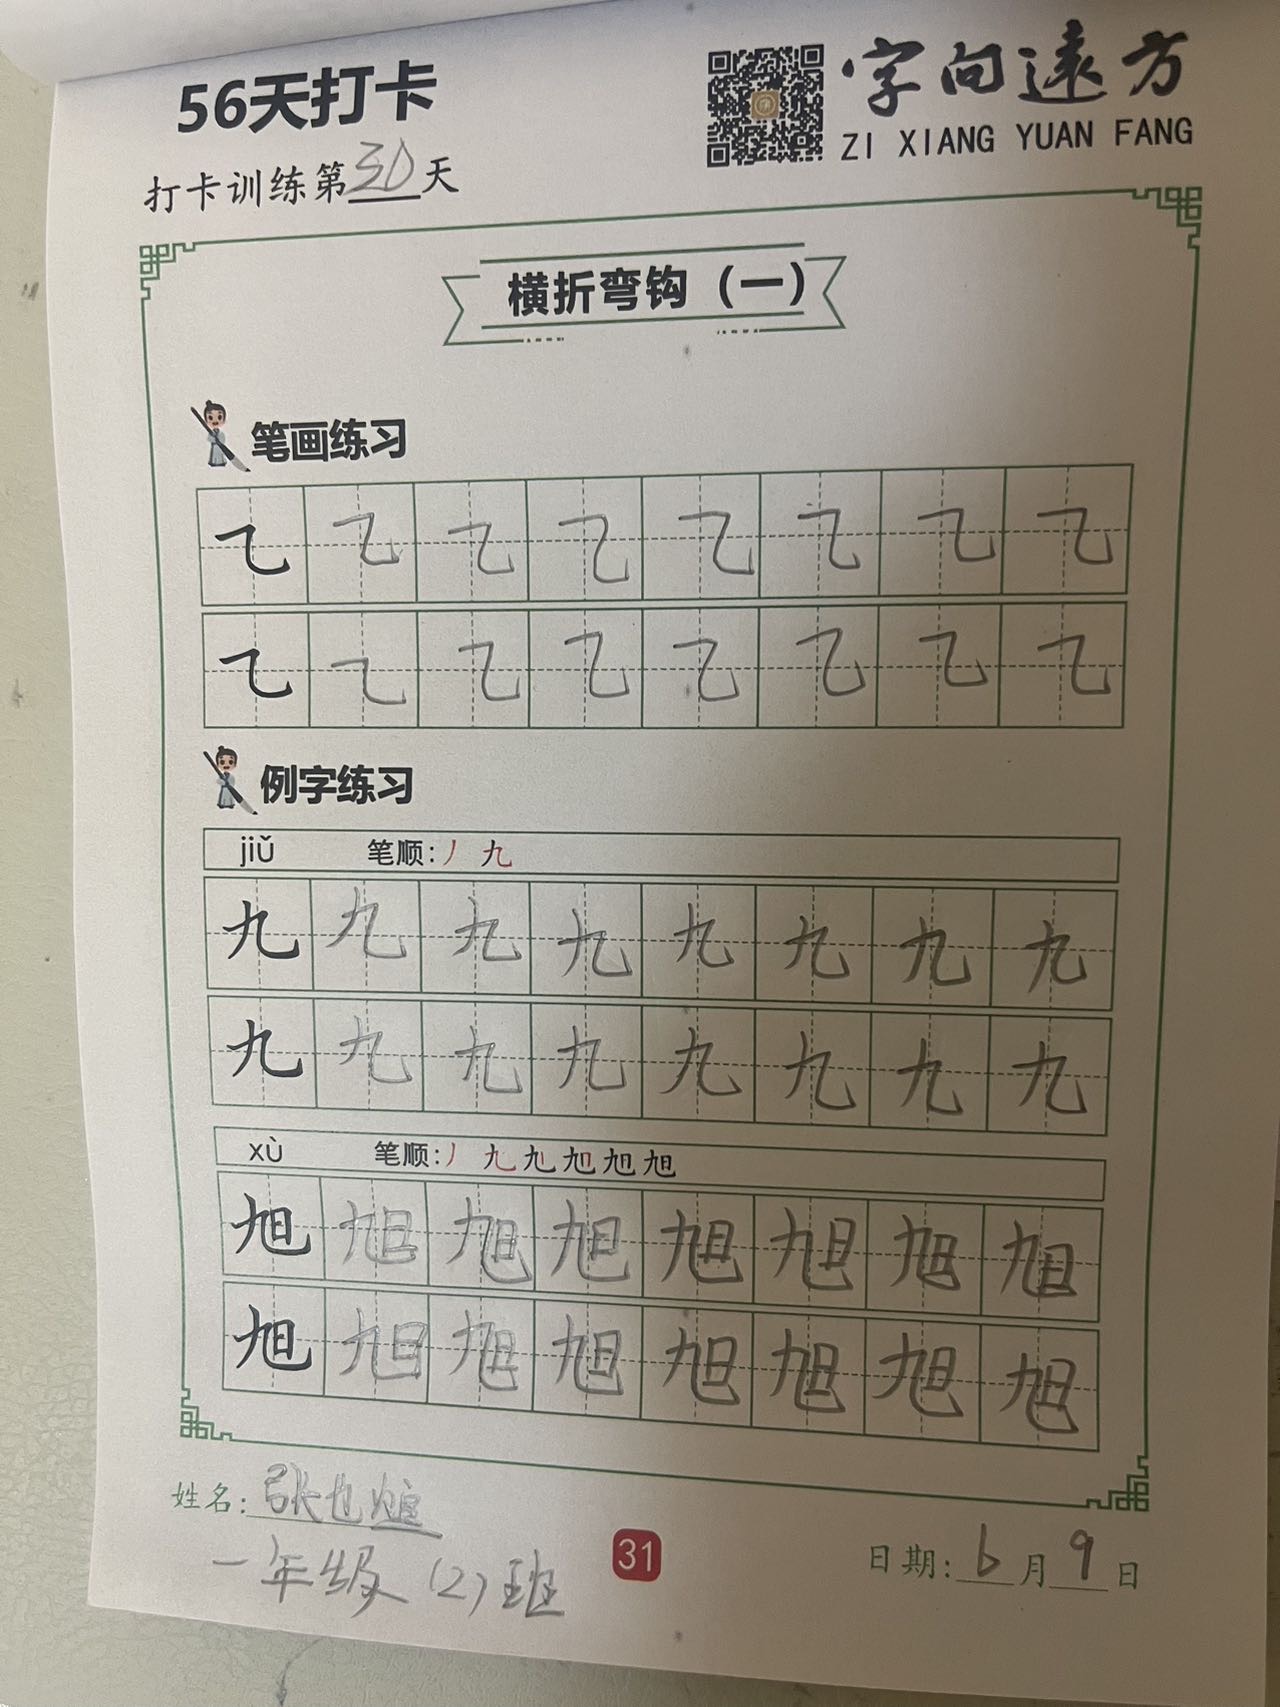 56天打卡
字向遠方
ZI XIANG YUAN FANG
打卡训练第30天
横折弯钩（一）
笔画练习
㇈ ㇈ ㇈ ㇈ ㇈ ㇈ ㇈ ㇈
㇈ ㇈ ㇈ ㇈ ㇈ ㇈ ㇈ ㇈
例字练习
jiǔ 笔顺：丿 九
九 九 九 九 九 九 九 九
九 九 九 九 九 九 九 九
xù 笔顺：丿 九 旭 旭
旭 旭 旭 旭 旭 旭 旭 旭
旭 旭 旭 旭 旭 旭 旭 旭
姓名：张也煊
一年级（2）班
31
日期：6月9日